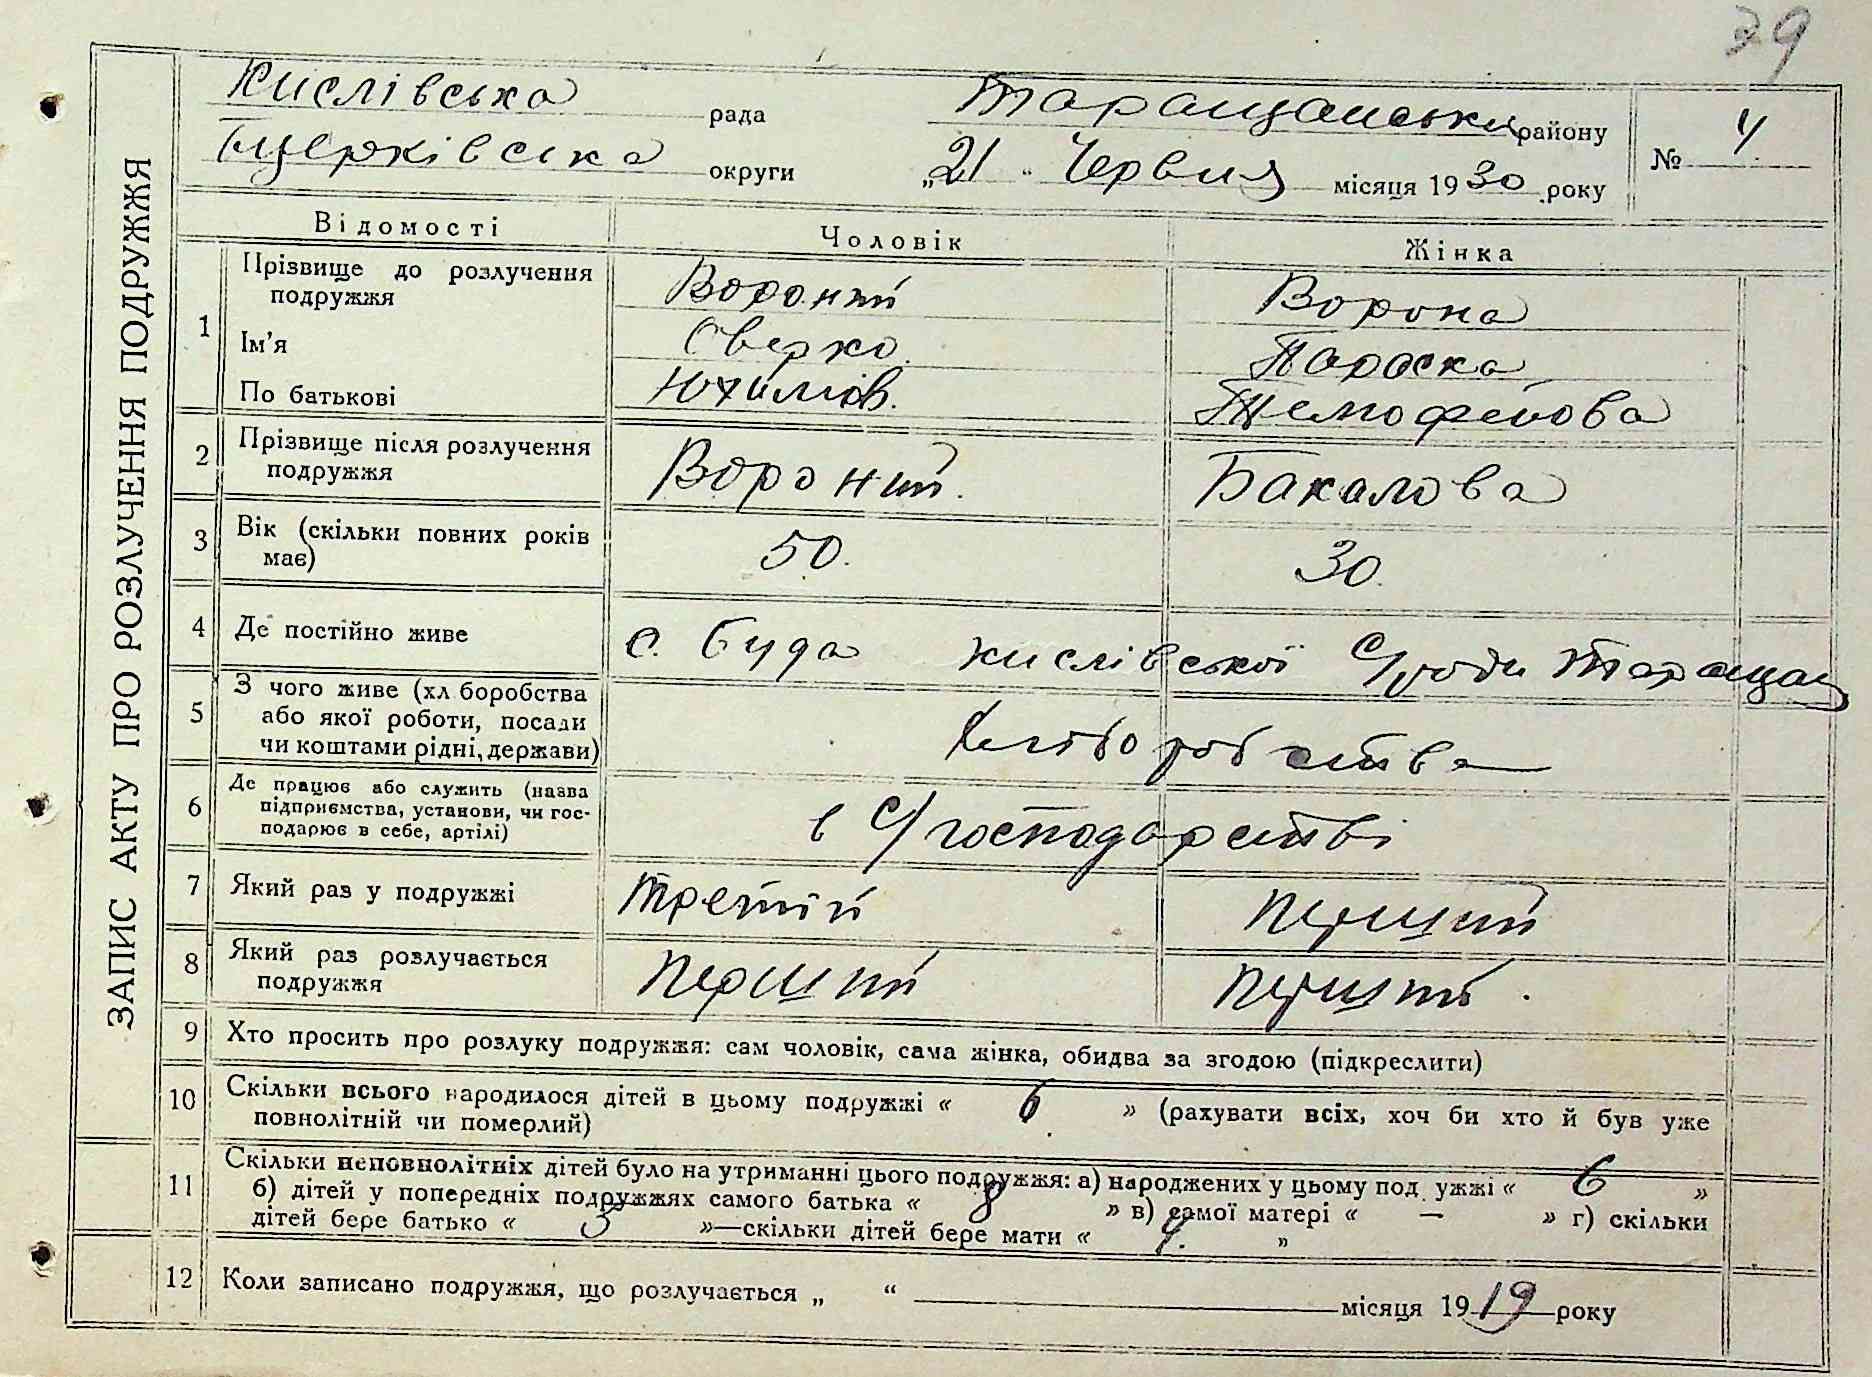 39
Кислівська рада Таращанськи району № 4
Бцерківська округи „21“ Червня місяця 1930 року
ЗАПИС АКТУ ПРО РОЗЛУЧЕННЯ ПОДРУЖЖЯ
Відомості Чоловік Жінка
1 Прізвище до розлучення Вороний Ворона
подружжя
Ім'я Оверко Параска
По батькові Юхимов. Темофейова
2 Прізвище після розлучення Вороний. Бакалова
подружжя
3 Вік (скільки повних років 50. 30.
має)
4 Де постійно живе с. Буда Кислівської С/ради Таращан
5 З чого живе (хліборобства Хліборобства
або якої роботи, посади
чи коштами рідні, держави)
6 Де працює або служить (назва в С/господарстві
підприємства, установи, чи гос-
подарює в себе, артілі)
7 Який раз у подружжі третій перший
8 Який раз розлучається перший перший.
подружжя
9 Хто просить про розлуку подружжя: сам чоловік, сама жінка, обидва за згодою (підкреслити)
10 Скільки всього народилося дітей в цьому подружжі « 6 » (рахувати всіх, хоч би хто й був уже
повнолітній чи померлий)
11 Скільки неповнолітніх дітей було на утриманні цього подружжя: а) народжених у цьому подружжі « 6 »
б) дітей у попередніх подружжях самого батька « 8 » в) самої матері « — » г) скільки
дітей бере батько « 3 »—скільки дітей бере мати « 4. »
12 Коли записано подружжя, що розлучається „ “ місяця 1919 року